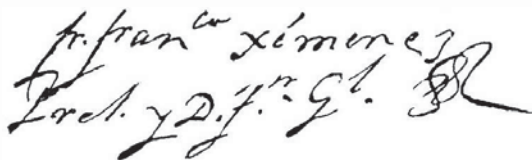 fr. fran^co ximenez
Pred. y D.f.r G^l.